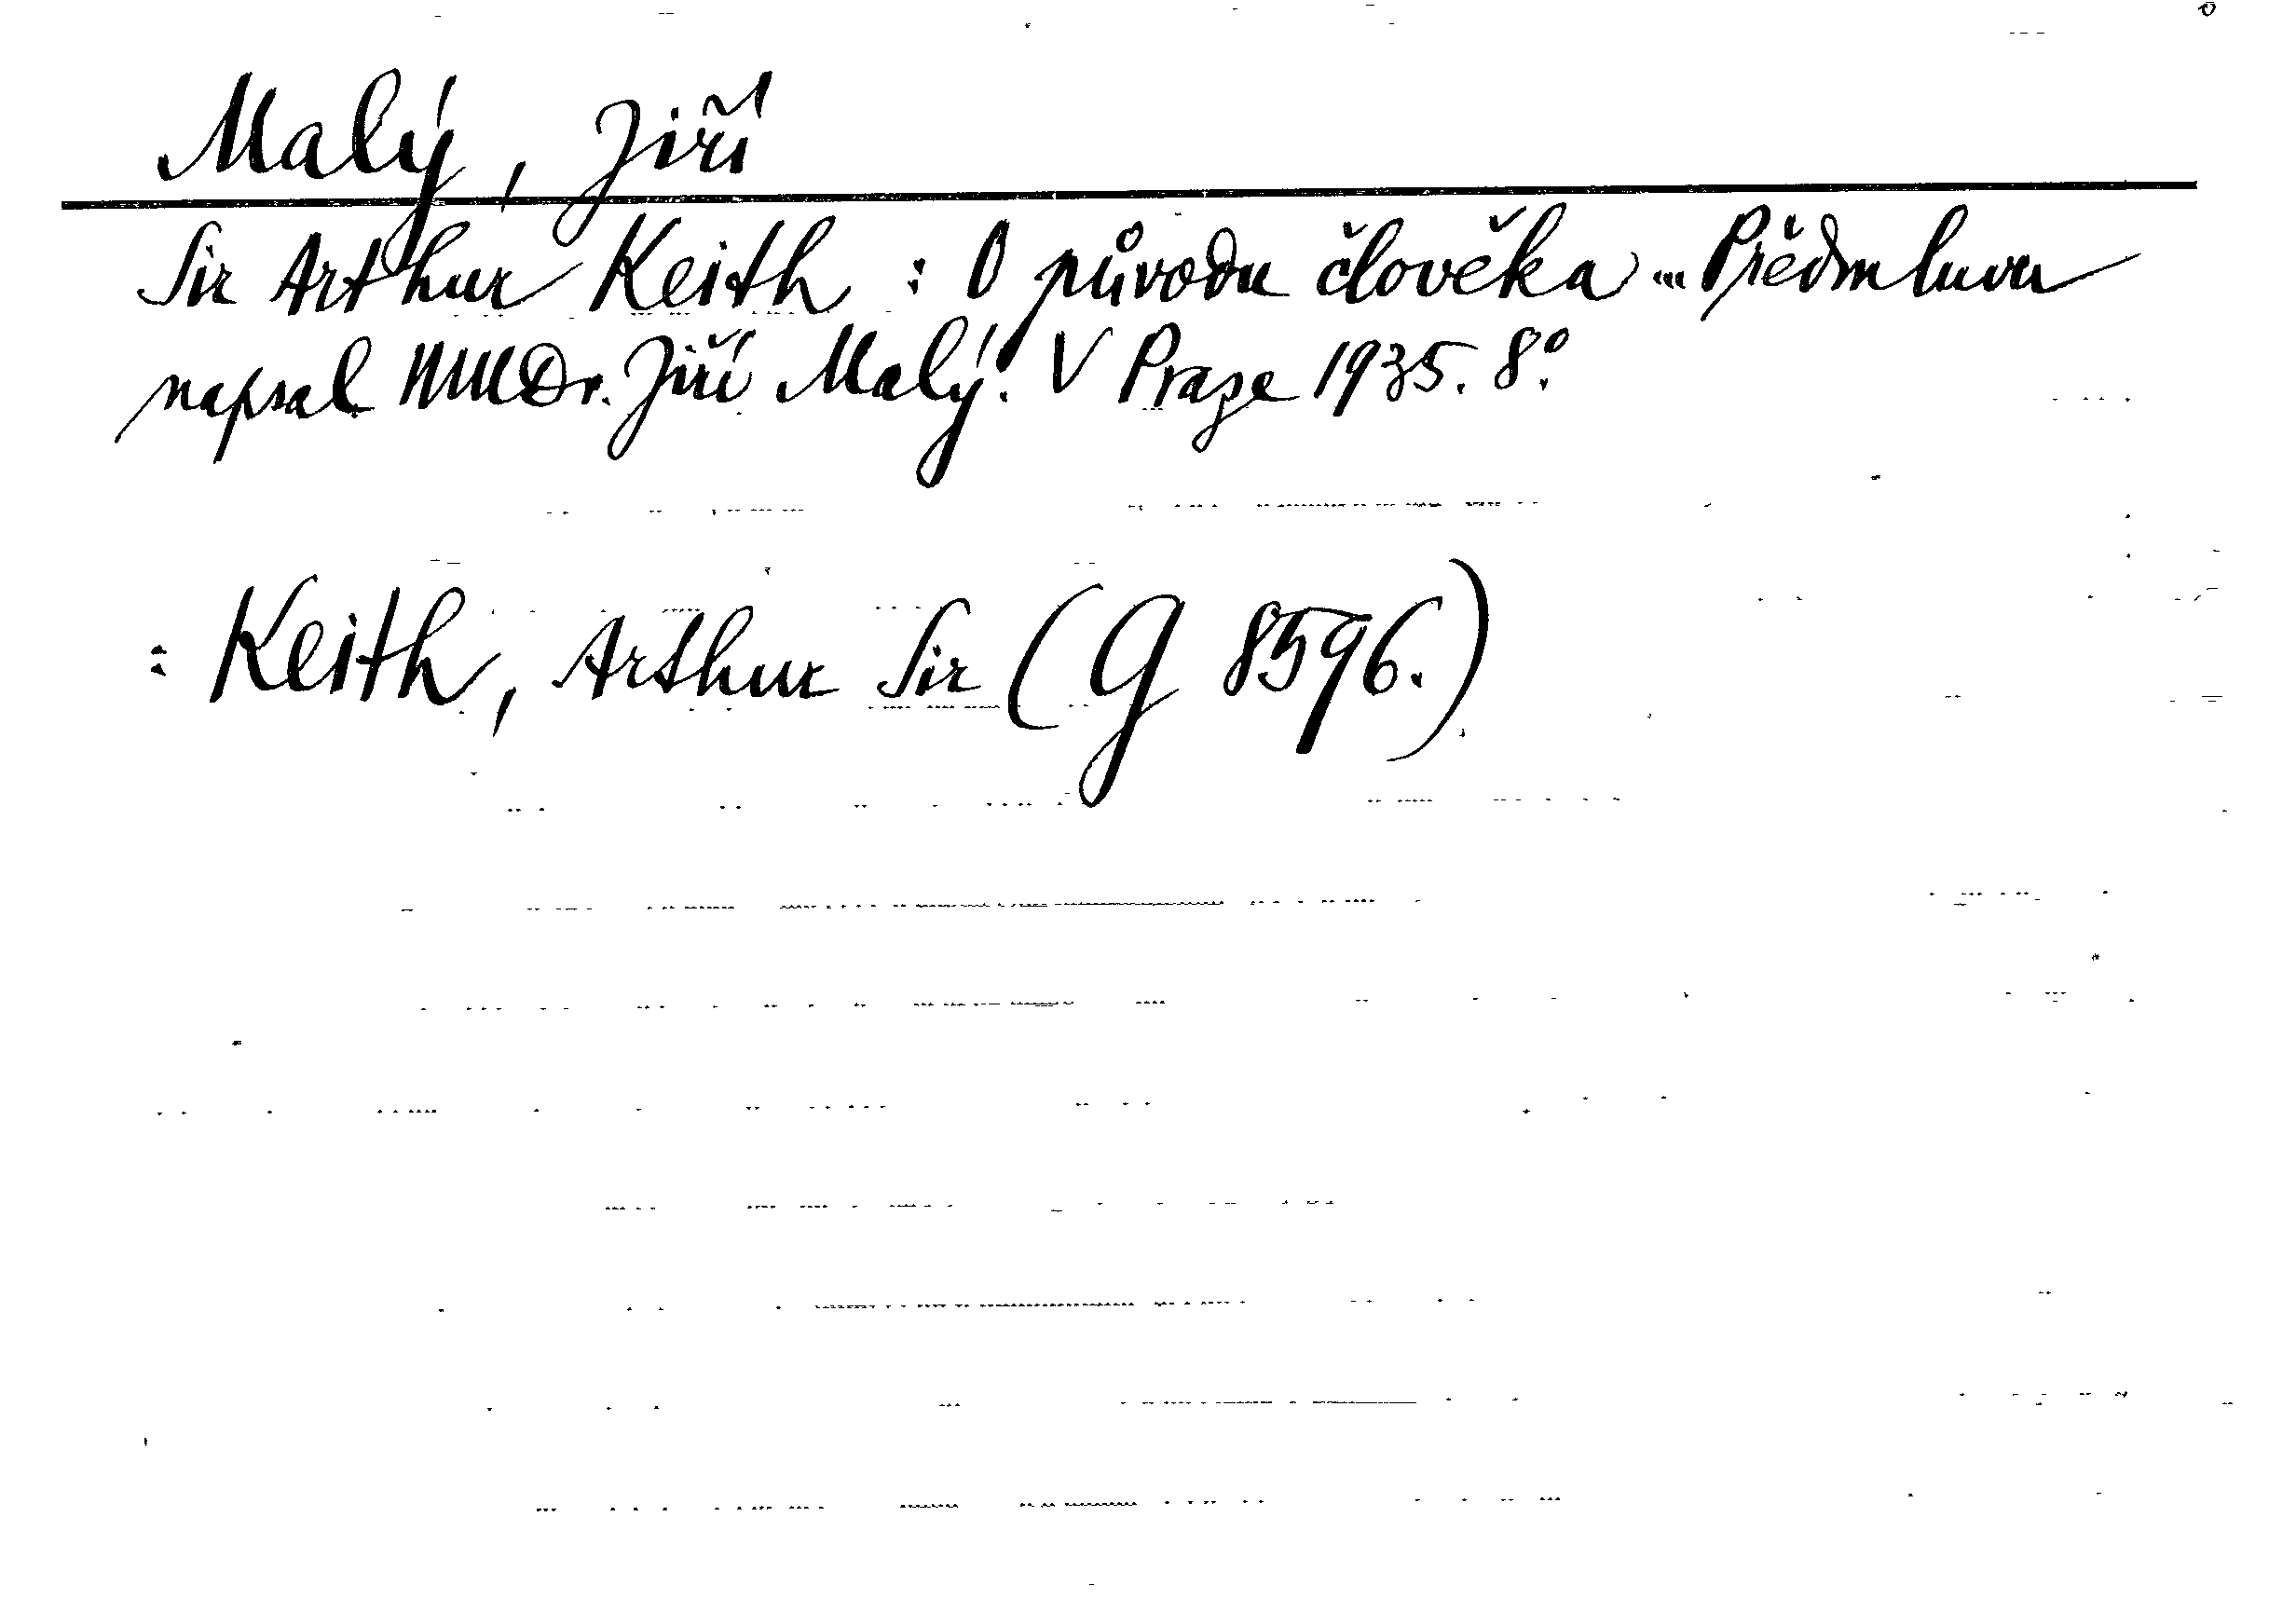 Malý, Jiří
Sir Arthur Keith : O původu člověka ... Předmluvu
napsal MUDr. Jiří Malý. V Praze 1935. 8°.
: Keith, Arthur Sir (G 8596.)